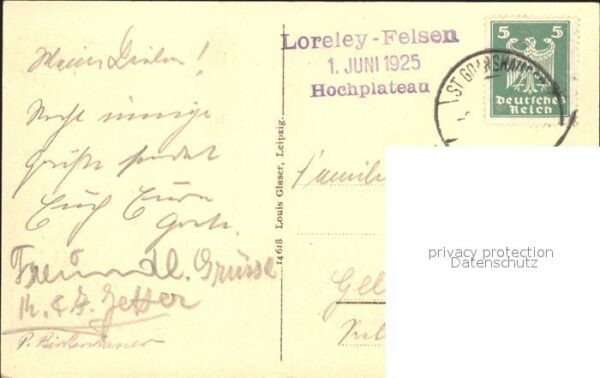 Meine Lieben!
Recht innige
Grüße sendet
Euch Eure
Freundl. Grüsse
14618 Louis Glaser, Leipzig.
Loreley-Felsen
1. JUNI 1925
Hochplateau
5 5
Deutsches
Reich
ST. GOARSHAUSEN
Familie
privacy protection
Datenschutz